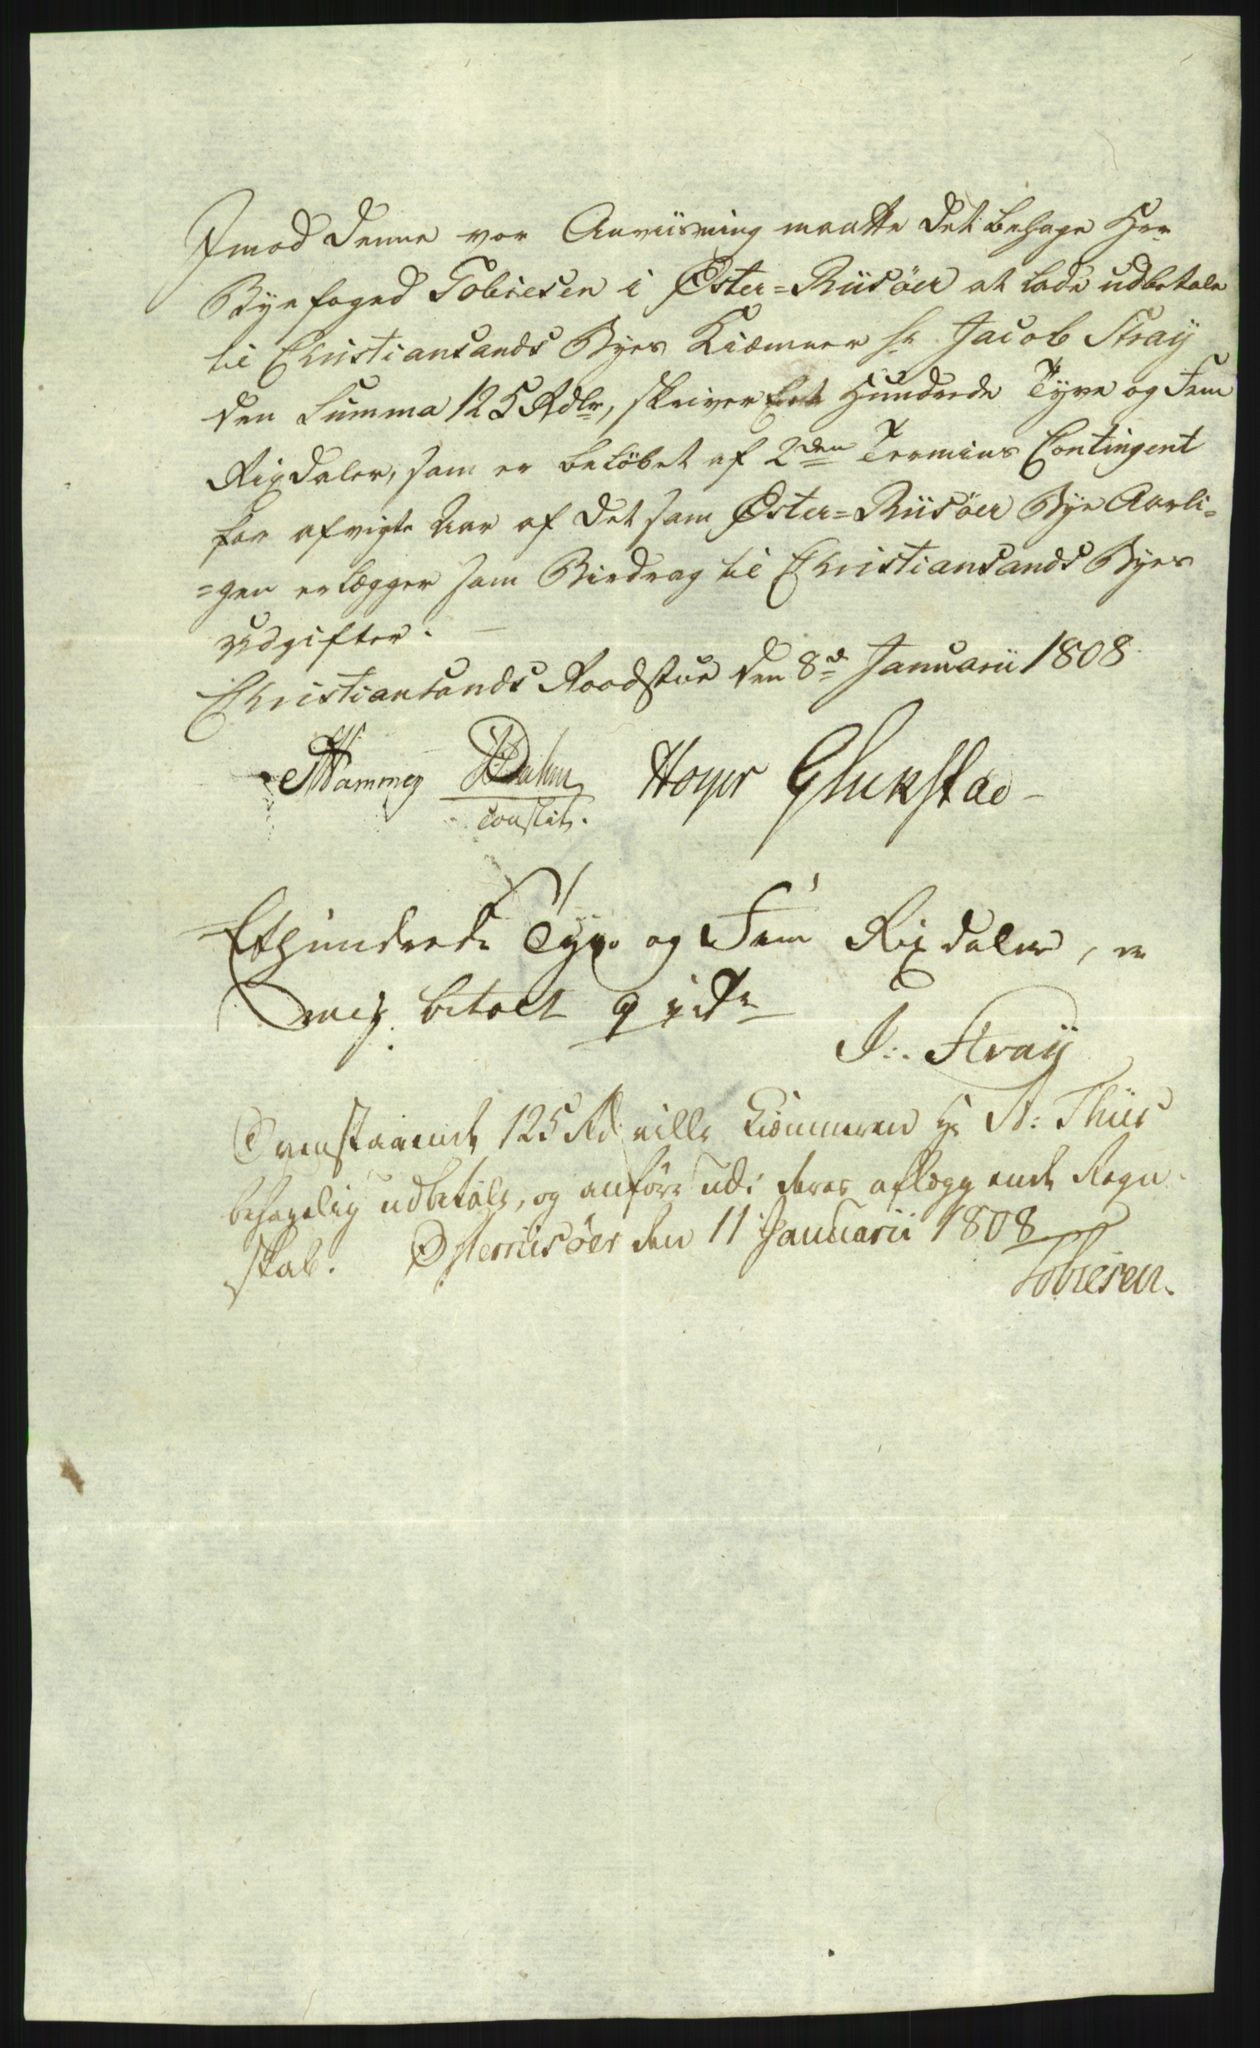 Imod denne vor Anviisning maatte det behage Herr
Byefoged Tobiesen i Øster=Riisöer at lade udbetale
til Christiansands Byes Kiæmner Hr. Jacob Stray
den Summa 125 Rdlr, skriver Eet Hundrede Tyve og Fem
Rixdaler, som er belöbet af 2den Termins Contingent
for afvigte Aar af det som Øster=Riisöer Bye Aarli=
=gen erlægger som Biedrag til Christiansands Byes
Udgifter.
Christiansands Raadstue den 8de Januarii 1808.
Hammer Dahm Hoyer Glukstad
constit.
Ethundrede Tyve og Fem Rixdaler, er
mig betalt qvitr
J: Stray
Ovenstaaende 125 Rd ville Kiæmneren Hr A: Thiis
behagelig udbetale, og anföre udi deres aflæggende Regn
skab. Österriisöer den 11 Januarii 1808
Tobiesen.